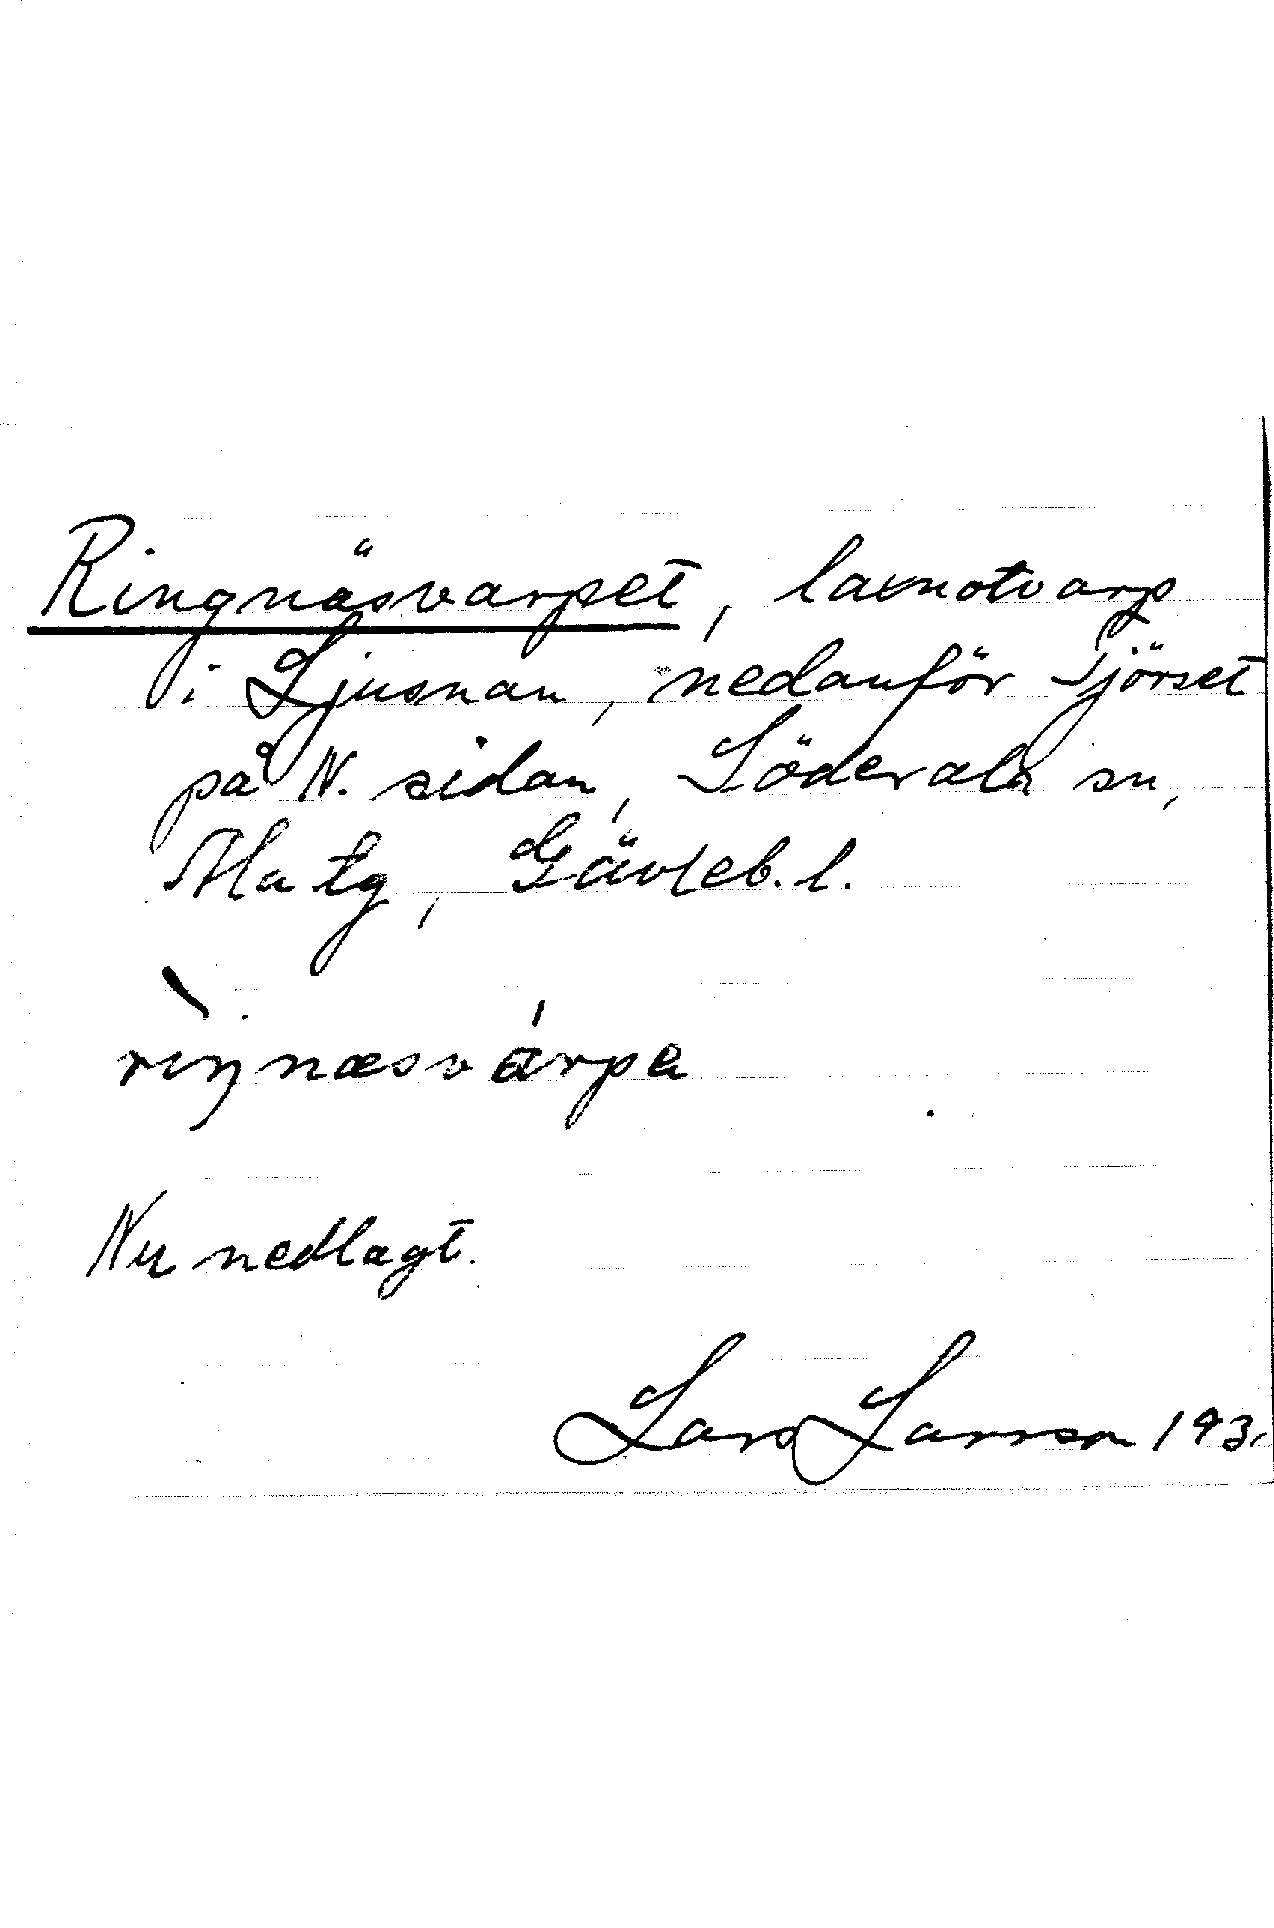 Ringnäsvarpet, laxnotvarp
i Ljusnan, nedanför
på N. sidan, Söderala sn,
Ala tg, Gävleb. l.
rìŋnæsvárpa
Nu nedlagt.
Lars Larsson 193